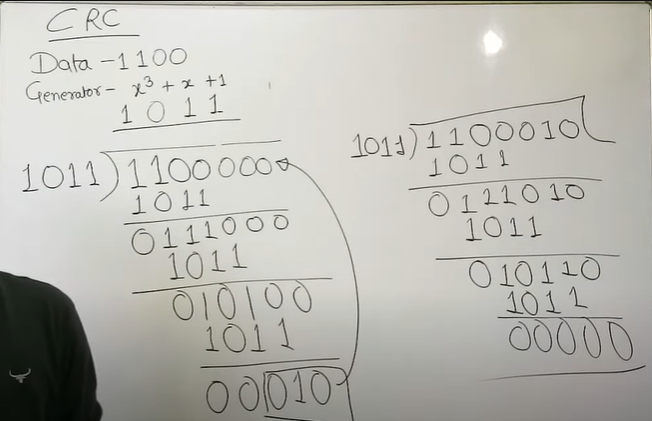 CRC
Data - 1100
Generator - x³ + x + 1
1 0 1 1
1011) 1100000
1011
0111000
1011
010100
1011
00010
1011) 1100010
1011
0111010
1011
010110
1011
00000